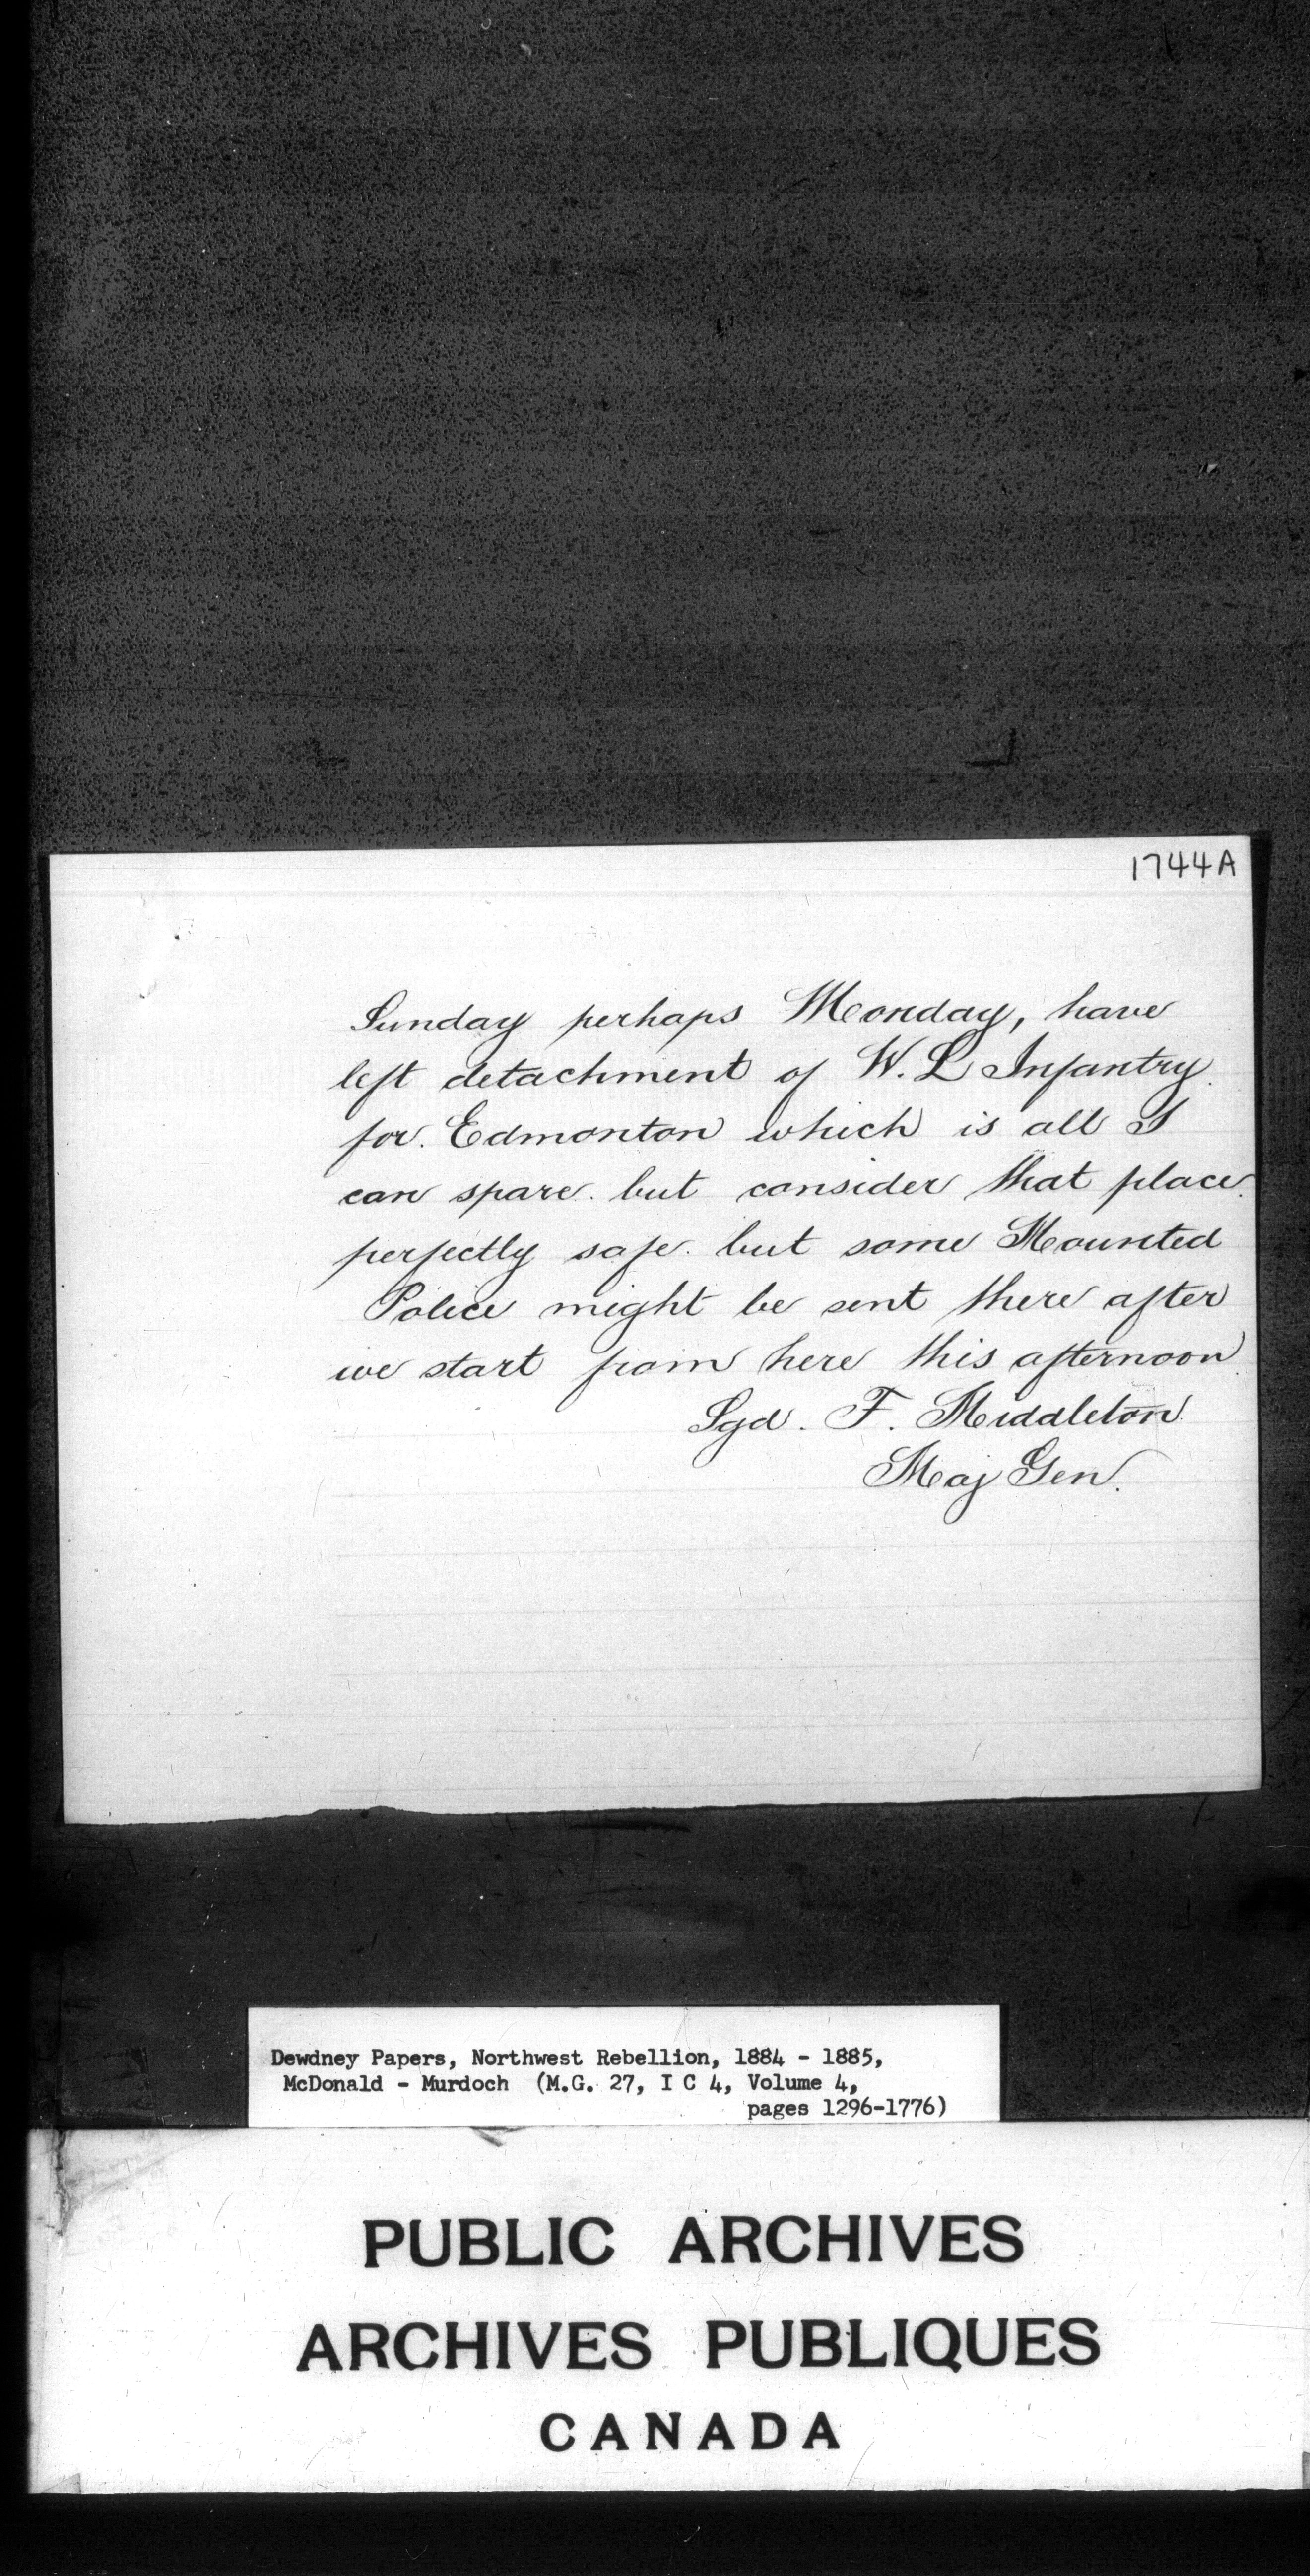 1744A
Sunday perhaps Monday, have
left detachment of W. L Infantry
for. Edmonton which is all I
can spare. but consider that place
perfectly safe. but some Mounted
Police might be sent there after
we start from here this afternoon
Sgd. F. Middleton
Maj Gen.
Dewdney Papers, Northwest Rebellion, 1884 - 1885,
McDonald - Murdoch (M.G. 27, I C 4, Volume 4,
pages 1296-1776)
PUBLIC ARCHIVES
ARCHIVES PUBLIQUES
CANADA